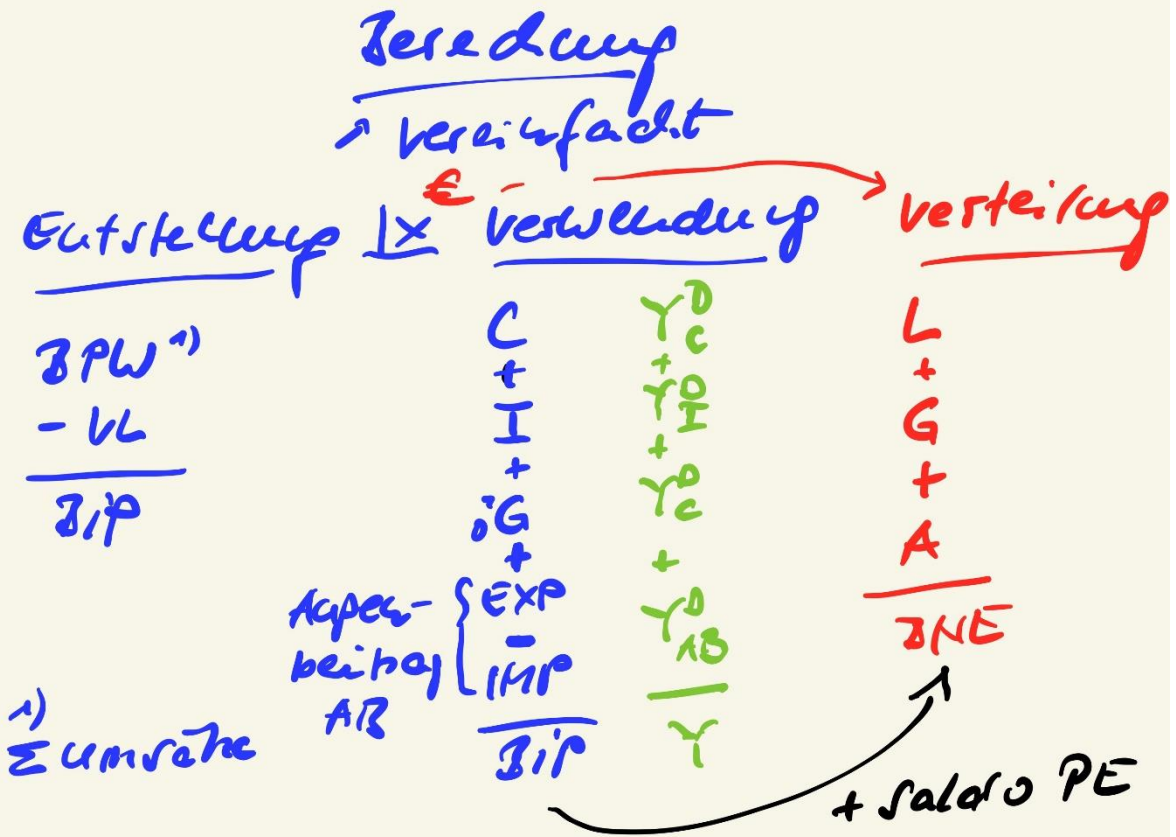 Berechnung
↗ vereinfacht
€
Entstehung | x Verwendung → Verteilung
BPW 1)
- VL
BIP
C
+
I
+
öG
+
Außen-
beitrag
AB
{ EXP
-
IMP
BIP
Y D C
+
Y D I
+
Y D C
+
Y D AB
Y
L
+
G
+
A
BNE
1)
Σ Umsätze
+ Saldo PE